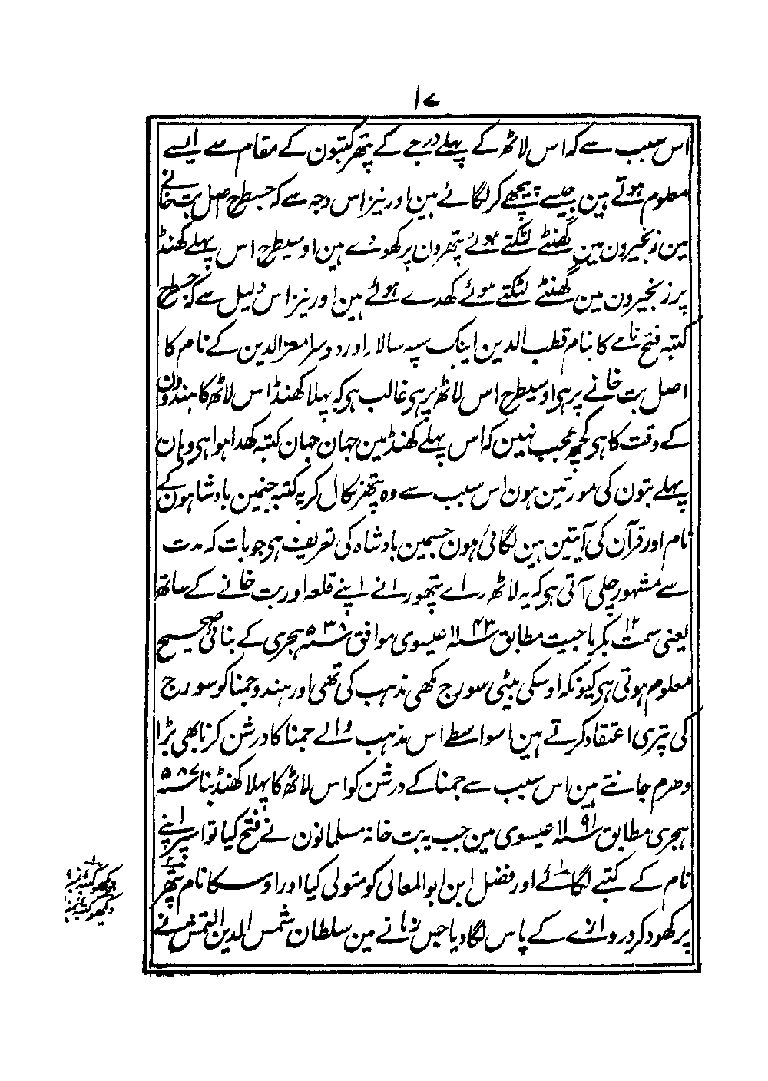 ۱۷
اس سبب سے کہ اس لاٹھ کے پہلے درجے کے پتھر کتبون کے مقام سے ایسے
معلوم ہوتے ہین جیسے پیچھے کر لگائے ہین اور نیز اس وجہ سے کہ جسطرح اصل بت خانے
مین زنجیرون مین گھنٹے لٹکتے ہوئے پتھرون پر کھودے ہین اوسیطرح اس پہلے کھنڈ
پر زنجیرون مین گھنٹے لٹکتے ہوئے کھدے ہوئے ہین اور نیز اس دلیل سے کہ جسطرح
کتبہ فتح نامے کا نام قطب الدین ایبک سپہ سالار اور دوسرا معز الدین کے نام کا
اصل بت خانے پر ہی اوسیطرح اس لاٹھ پر ہی غالب ہی کہ پہلا کھنڈ اس لاٹھ کا ہندوون
کے وقت کا ہی کچھ عجب نہین کہ اس پہلے کھنڈ مین جہان جہان کتبہ کھدا ہوا ہی وہان
پہلے بتون کی مورتین ہون اس سبب سے وہ پتھر نکال کر یہ کتبہ جنمین بادشاہون کے
نام اور قرآن کی آیتین ہین لگائی ہون جسمین بادشاہ کی تعریف ہی جو بات کہ مدت
سے مشہور چلی آتی ہی کہ یہ لاٹھ راے پتھورا نے اپنے قلعہ اور بت خانے کے ساتھ
یعنی سمت بکرماجیت مطابق ۱۱۴۳ عیسوی موافق ۵۳۸ ہجری کے بنائی صحیح
معلوم ہوتی ہی کیونکہ اوسکی بیٹی سورج مکھی مذہب کی تھی اور ہندو جمنا کو سورج
کی پتری اعتقاد کرتے ہین اسواسطے اس مذہب والے جمنا کا درشن کرنا بھی بڑا
دھرم جانتے ہین اس سبب سے جمنا کے درشن کو اس لاٹھ کا پہلا کھنڈ بنا ۵۸۷
ہجری مطابق ۱۱۹۱ عیسوی مین جب یہ بت خانہ مسلمانون نے فتح کیا تو اسپر اپنے
نام کے کتبے لگائے اور فضل ابن ابو المعالی کو متولی کیا اور اوسکا نام پتھر
پر کھود کر دروازے کے پاس لگا دیا جس زمانے مین سلطان شمس الدین التمش نے